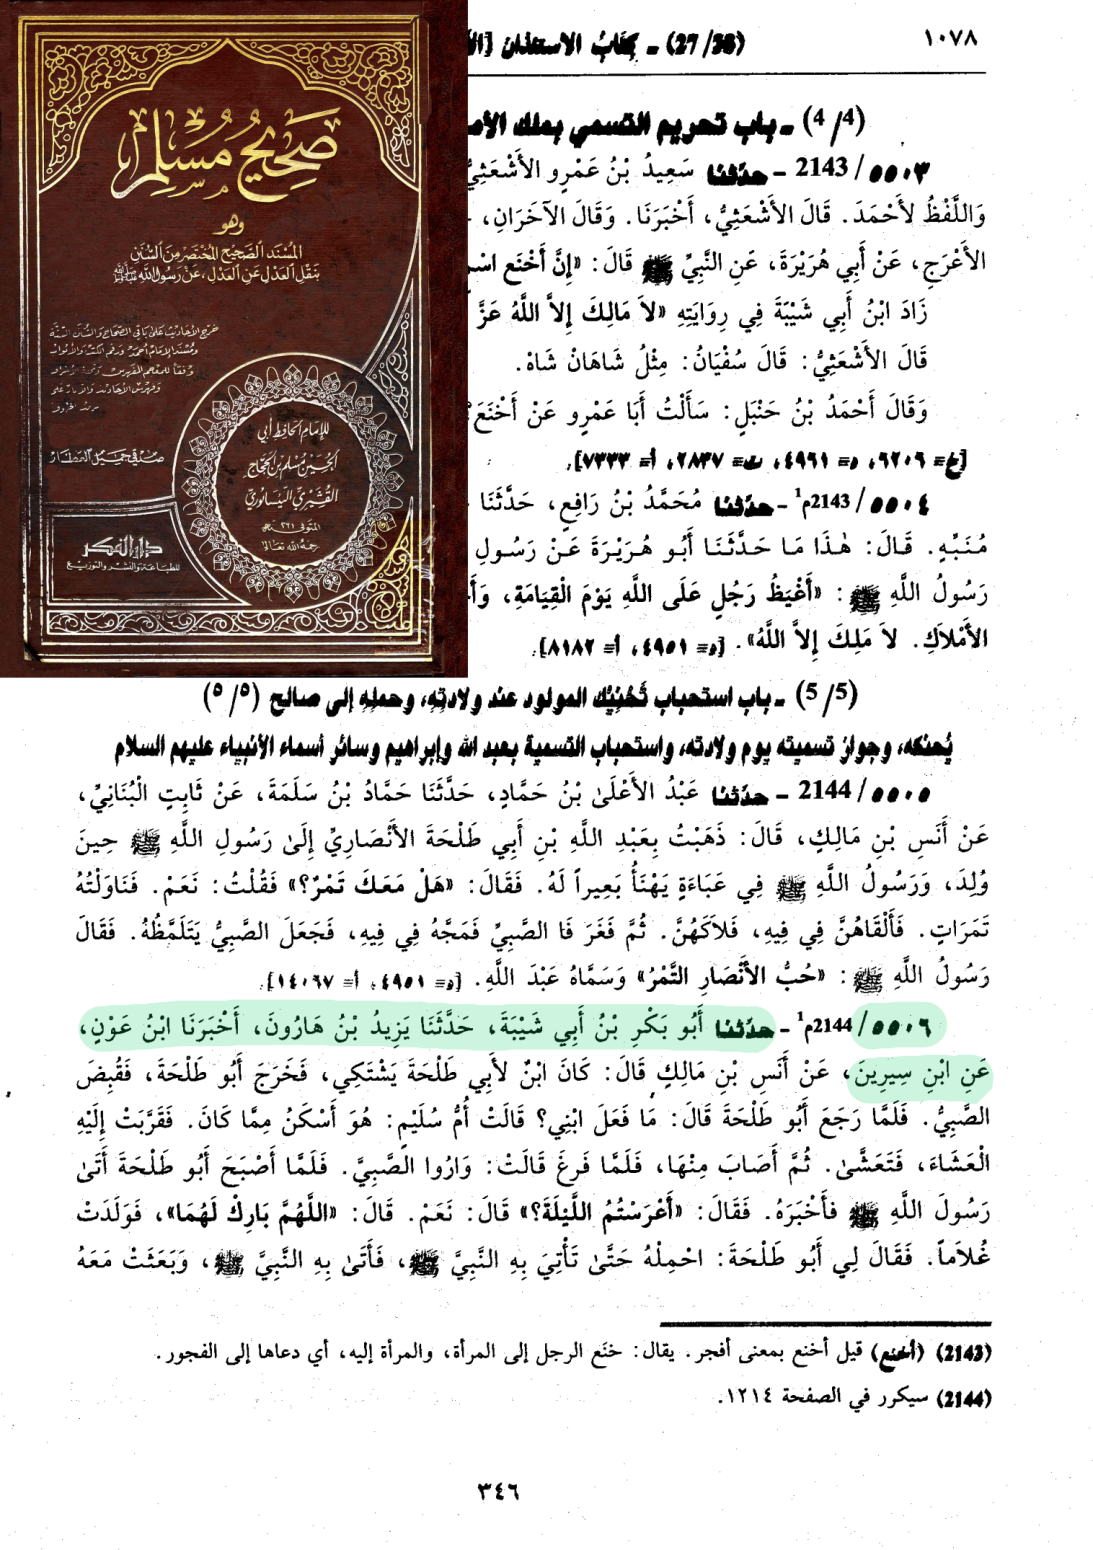 صَحِيحُ مُسْلِم
وهو
المُسْنَد الصَّحِيح المُخْتَصَر مِنَ السُّنَن
بنَقْل العَدْل عَنِ العَدْل، عَنْ رَسُولِ اللَّه ﷺ
للإمَام الحَافِظ أبي
الحُسَيْن مُسْلِم بن الحَجَّاج
القُشَيْريِّ النَّيْسَابُوريِّ
المتَوفى ٢٦١ هـ
رحمَهُ الله تعَالى
صدقي جميل العطار
دار الفكر
للطباعة والنشر والتوزيع
١٠٧٨
(27/38) ـ كِتَابُ الاستئذان
(4/4) ـ باب تحريم التسمي بملك
٥٥٠٣/ 2143 ـ حدّثنا سَعِيدُ بْنُ عَمْرٍو الأَشْعَثِيُّ
وَاللَّفْظُ لأَحْمَدَ. قَالَ الأَشْعَثِيُّ، أَخْبَرَنَا. وَقَالَ الآخَرَانِ،
الأَعْرَجِ، عَنْ أَبِي هُرَيْرَةَ، عَنِ النَّبِيِّ ﷺ قَالَ: «إِنَّ أَخْنَع
زَادَ ابْنُ أَبِي شَيْبَةَ فِي رِوَايَتِهِ «لاَ مَالِكَ إِلاَّ اللَّهُ عَزَّ
قَالَ الأَشْعَثِيُّ: قَالَ سُفْيَانُ: مِثْلُ شَاهَانْ شَاهْ.
وَقَالَ أَحْمَدُ بْنُ حَنْبَلٍ: سَأَلْتُ أَبَا عَمْرٍو عَنْ أَخْنَعَ
[خ= ٦٢٠٦، د= ٤٩٦١، ت= ٢٨٣٧، أ= ٧٣٣٣].
٥٥٠٤/ 2143م1 ـ حدّثنا مُحَمَّدُ بْنُ رَافِعٍ، حَدَّثَنَا
مُنَبِّهٍ. قَالَ: هٰذَا مَا حَدَّثَنَا أَبُو هُرَيْرَةَ عَنْ رَسُولِ
رَسُولُ اللَّهِ ﷺ: «أَغْيَظُ رَجُلٍ عَلَى اللَّهِ يَوْمَ الْقِيَامَةِ،
الأَمْلاَكِ. لاَ مَلِكَ إِلاَّ اللَّهُ». [د= ٤٩٥١، أ= ٨١٨٢].
(5/5) ـ باب استحباب تَحْنِيْكِ المولود عند ولادتِهِ، وحملِهِ إلى صالح (٥/٥)
يُحنكه، وجواز تسميته يوم ولادته، واستحباب التسمية بعبد الله وإبراهيم وسائر أسماء الأنبياء عليهم السلام
٥٥٠٥/ 2144 ـ حدّثنا عَبْدُ الأَعْلَىٰ بْنُ حَمَّادٍ، حَدَّثَنَا حَمَّادُ بْنُ سَلَمَةَ، عَنْ ثَابِتٍ الْبُنَانِيِّ،
عَنْ أَنَسِ بْنِ مَالِكٍ، قَالَ: ذَهَبْتُ بِعَبْدِ اللَّهِ بْنِ أَبِي طَلْحَةَ الأَنْصَارِيِّ إِلَىٰ رَسُولِ اللَّهِ ﷺ حِينَ
وُلِدَ، وَرَسُولُ اللَّهِ ﷺ فِي عَبَاءَةٍ يَهْنَأُ بَعِيراً لَهُ. فَقَالَ: «هَلْ مَعَكَ تَمْرٌ؟» فَقُلْتُ: نَعَمْ. فَنَاوَلْتُهُ
تَمَرَاتٍ. فَأَلْقَاهُنَّ فِي فِيهِ، فَلاَكَهُنَّ. ثُمَّ فَغَرَ فَا الصَّبِيِّ فَمَجَّهُ فِي فِيهِ، فَجَعَلَ الصَّبِيُّ يَتَلَمَّظُهُ. فَقَالَ
رَسُولُ اللَّهِ ﷺ: «حُبُّ الأَنْصَارِ التَّمْرُ» وَسَمَّاهُ عَبْدَ اللَّهِ. [د= ٤٩٥١، أ= ١٤٠٦٧].
٥٥٠٦/ 2144م1 ـ حدّثنا أَبُو بَكْرِ بْنُ أَبِي شَيْبَةَ، حَدَّثَنَا يَزِيدُ بْنُ هَارُونَ، أَخْبَرَنَا ابْنُ عَوْنٍ،
عَنِ ابْنِ سِيرِينَ، عَنْ أَنَسِ بْنِ مَالِكٍ قَالَ: كَانَ ابْنٌ لأَبِي طَلْحَةَ يَشْتَكِي، فَخَرَجَ أَبُو طَلْحَةَ، فَقُبِضَ
الصَّبِيُّ. فَلَمَّا رَجَعَ أَبُو طَلْحَةَ قَالَ: مَا فَعَلَ ابْنِي؟ قَالَتْ أُمُّ سُلَيْمٍ: هُوَ أَسْكَنُ مِمَّا كَانَ. فَقَرَّبَتْ إِلَيْهِ
الْعَشَاءَ، فَتَعَشَّىٰ. ثُمَّ أَصَابَ مِنْهَا، فَلَمَّا فَرِغَ قَالَتْ: وَارُوا الصَّبِيَّ. فَلَمَّا أَصْبَحَ أَبُو طَلْحَةَ أَتَىٰ
رَسُولَ اللَّهِ ﷺ فَأَخْبَرَهُ. فَقَالَ: «أَعْرَسْتُمُ اللَّيْلَةَ؟» قَالَ: نَعَمْ. قَالَ: «اللَّهُمَّ بَارِكْ لَهُمَا»، فَوَلَدَتْ
غُلاَماً. فَقَالَ لِي أَبُو طَلْحَةَ: احْمِلْهُ حَتَّىٰ تَأْتِيَ بِهِ النَّبِيَّ ﷺ، فَأَتَىٰ بِهِ النَّبِيَّ ﷺ، وَبَعَثَتْ مَعَهُ
(2143) (أخنع) قيل أخنع بمعنى أفجر. يقال: خنَع الرجل إلى المرأة، والمرأة إليه، أي دعاها إلى الفجور.
(2144) سيكرر في الصفحة ١٢١٤.
٣٤٦